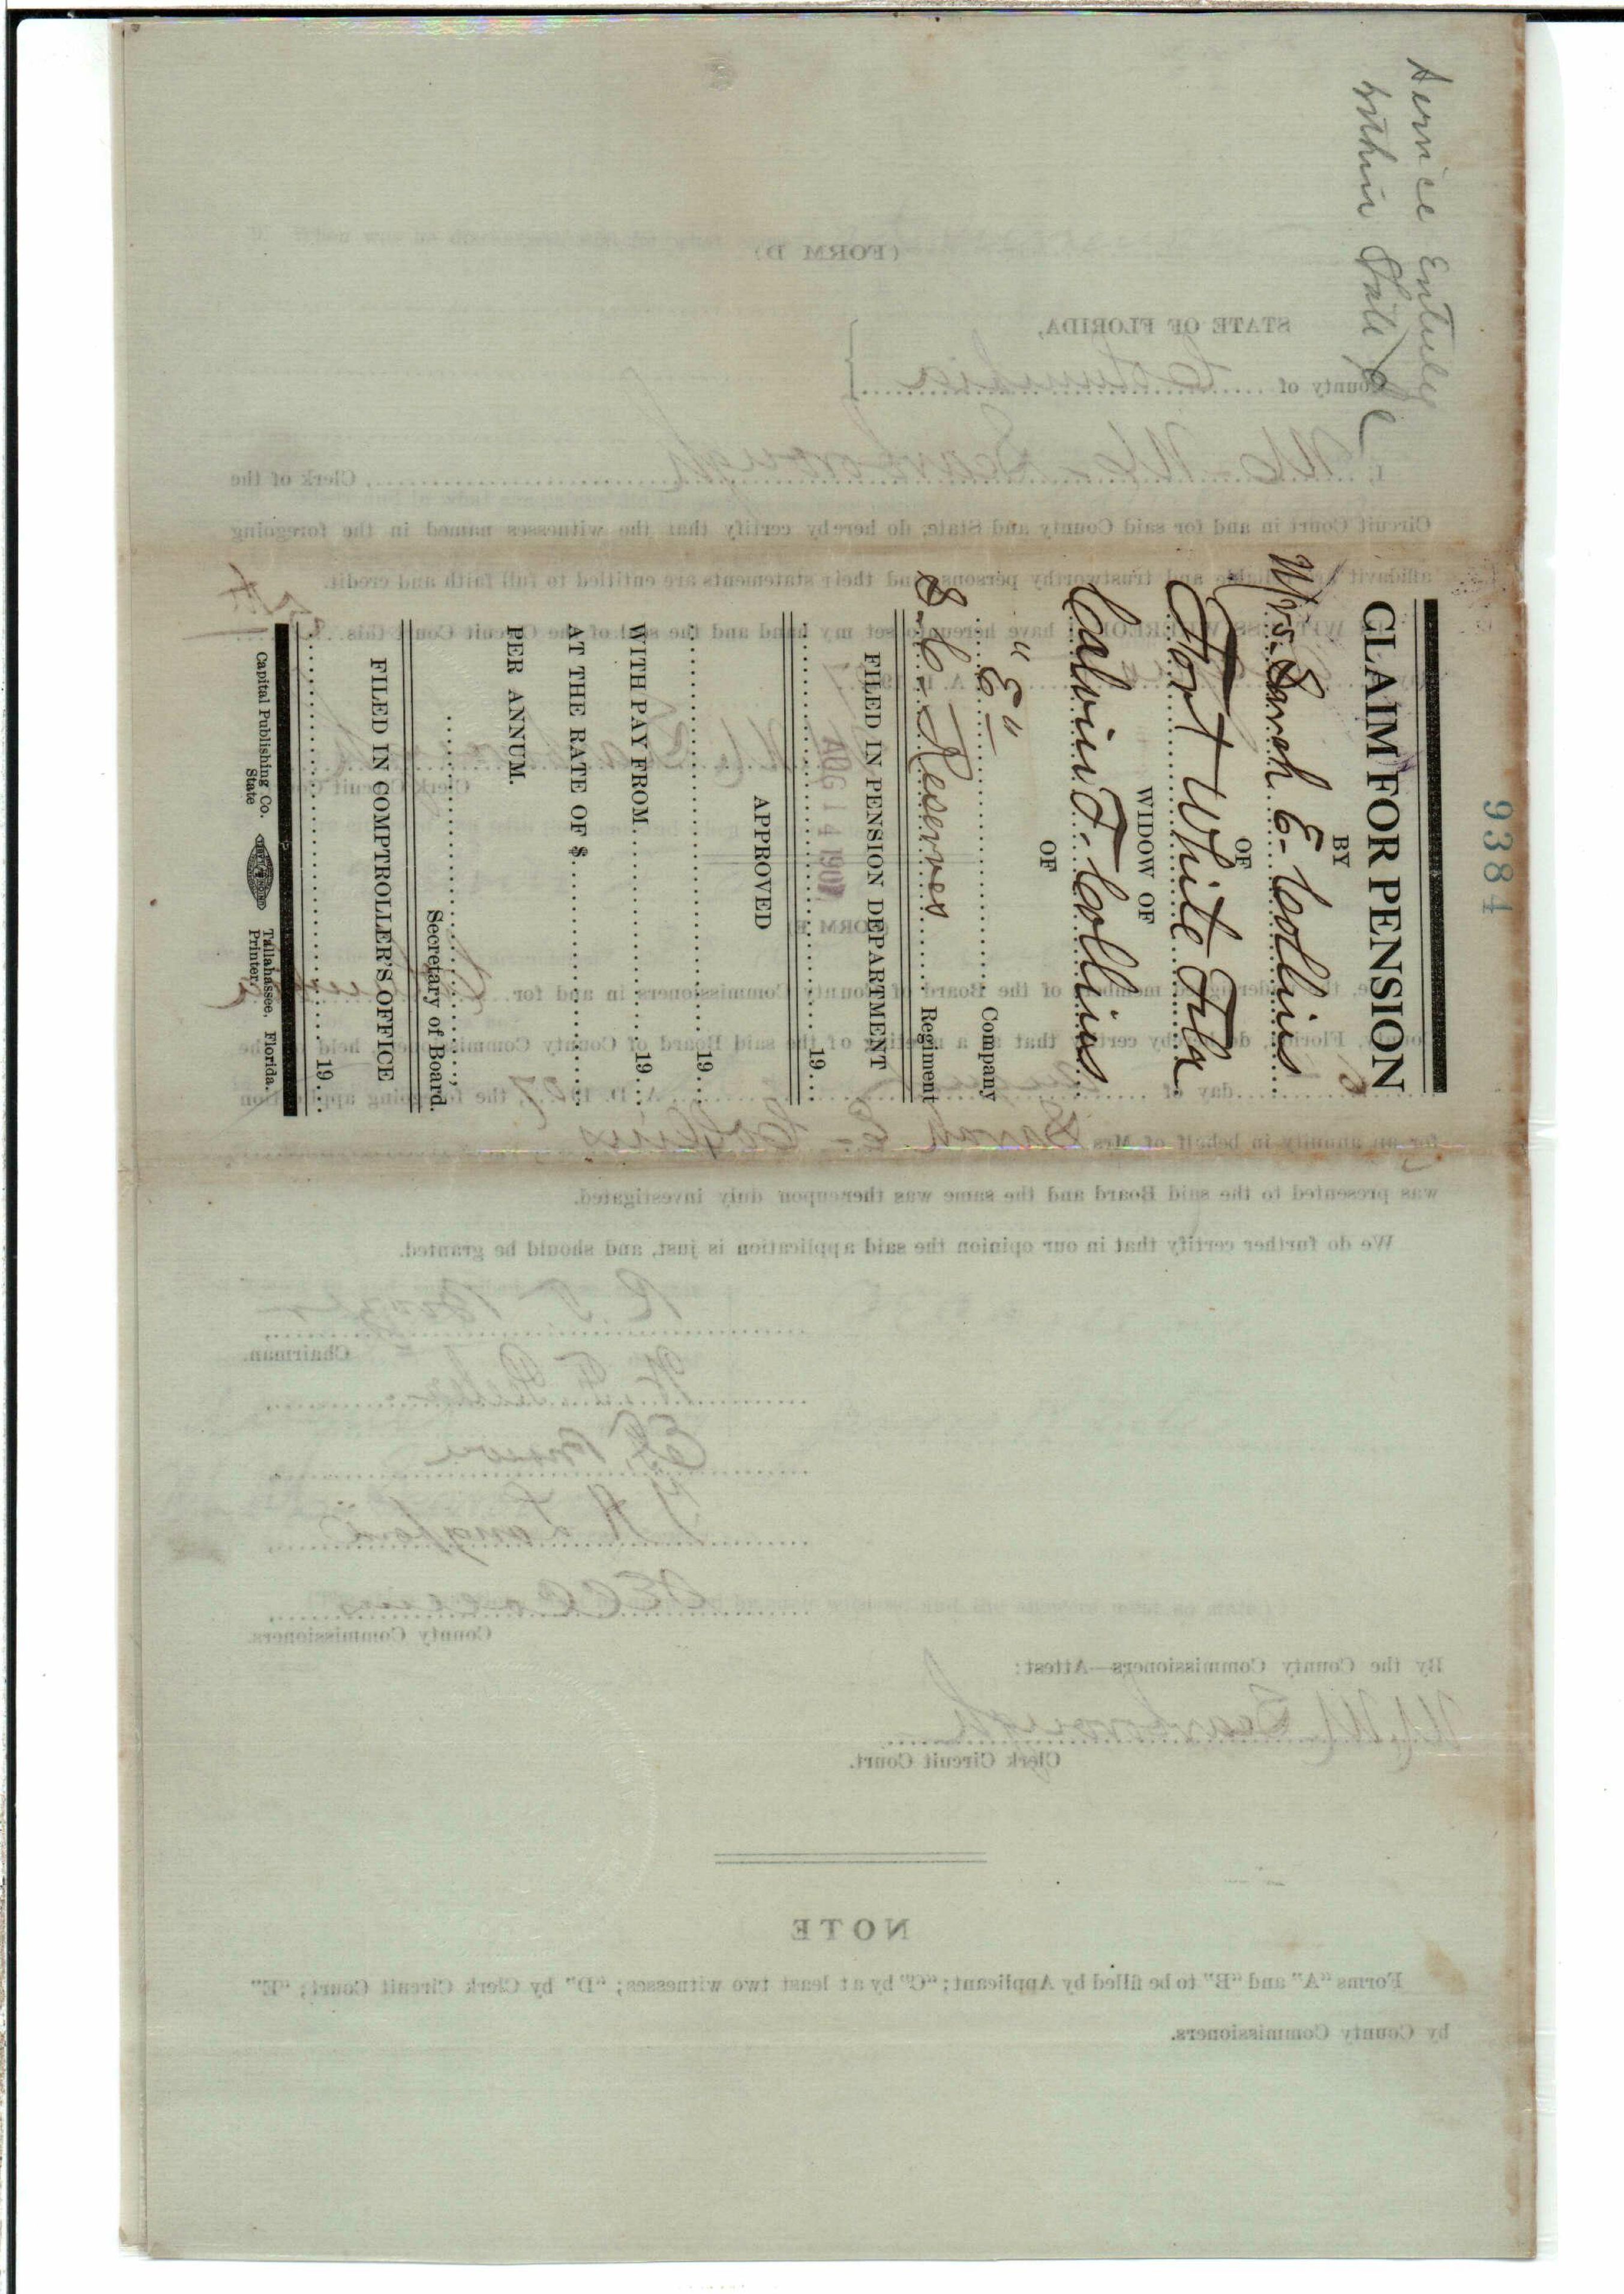 9384
Service Entirely
within State
CLAIM FOR PENSION
BY
Mrs. Sarah E- Collins
OF
Fort White Fla
WIDOW OF
Calvin T- Collins
OF
"E" Company
S-C- Reserves Regiment
FILED IN PENSION DEPARTMENT
AUG 14 1907
19
APPROVED
19
WITH PAY FROM 19
AT THE RATE OF $
PER ANNUM.
Secretary of Board.
FILED IN COMPTROLLER'S OFFICE
19
Capital Publishing Co. State Printer, Tallahassee, Florida.
(FORM D)
STATE OF FLORIDA,
County of Columbia
I, Scarborough, Clerk of the
Circuit Court in and for said County and State, do hereby certify that the witnesses named in the foregoing
affidavit are reliable and trustworthy persons and their statements are entitled to full faith and credit.
WITNESS WHEREOF, I have hereunto set my hand and the seal of the Circuit Court this
A. D. 1907
Clerk Circuit Court
(FORM E)
We, the undersigned members of the Board of County Commissioners in and for Columbia
County, Florida, do hereby certify that at a meeting of the said Board of County Commissioners held on the
6 day of August A. D. 1907, the foregoing application
for an annuity in behalf of Mrs Sarah E- Collins
was presented to the said Board and the same was thereupon duly investigated.
We do further certify that in our opinion the said application is just, and should be granted.
Chairman.
County Commissioners.
By the County Commissioners—Attest:
Scarborough
Clerk Circuit Court.
NOTE
Forms "A" and "B" to be filled by Applicant; "C" by at least two witnesses; "D" by Clerk Circuit Court; "E"
by County Commissioners.